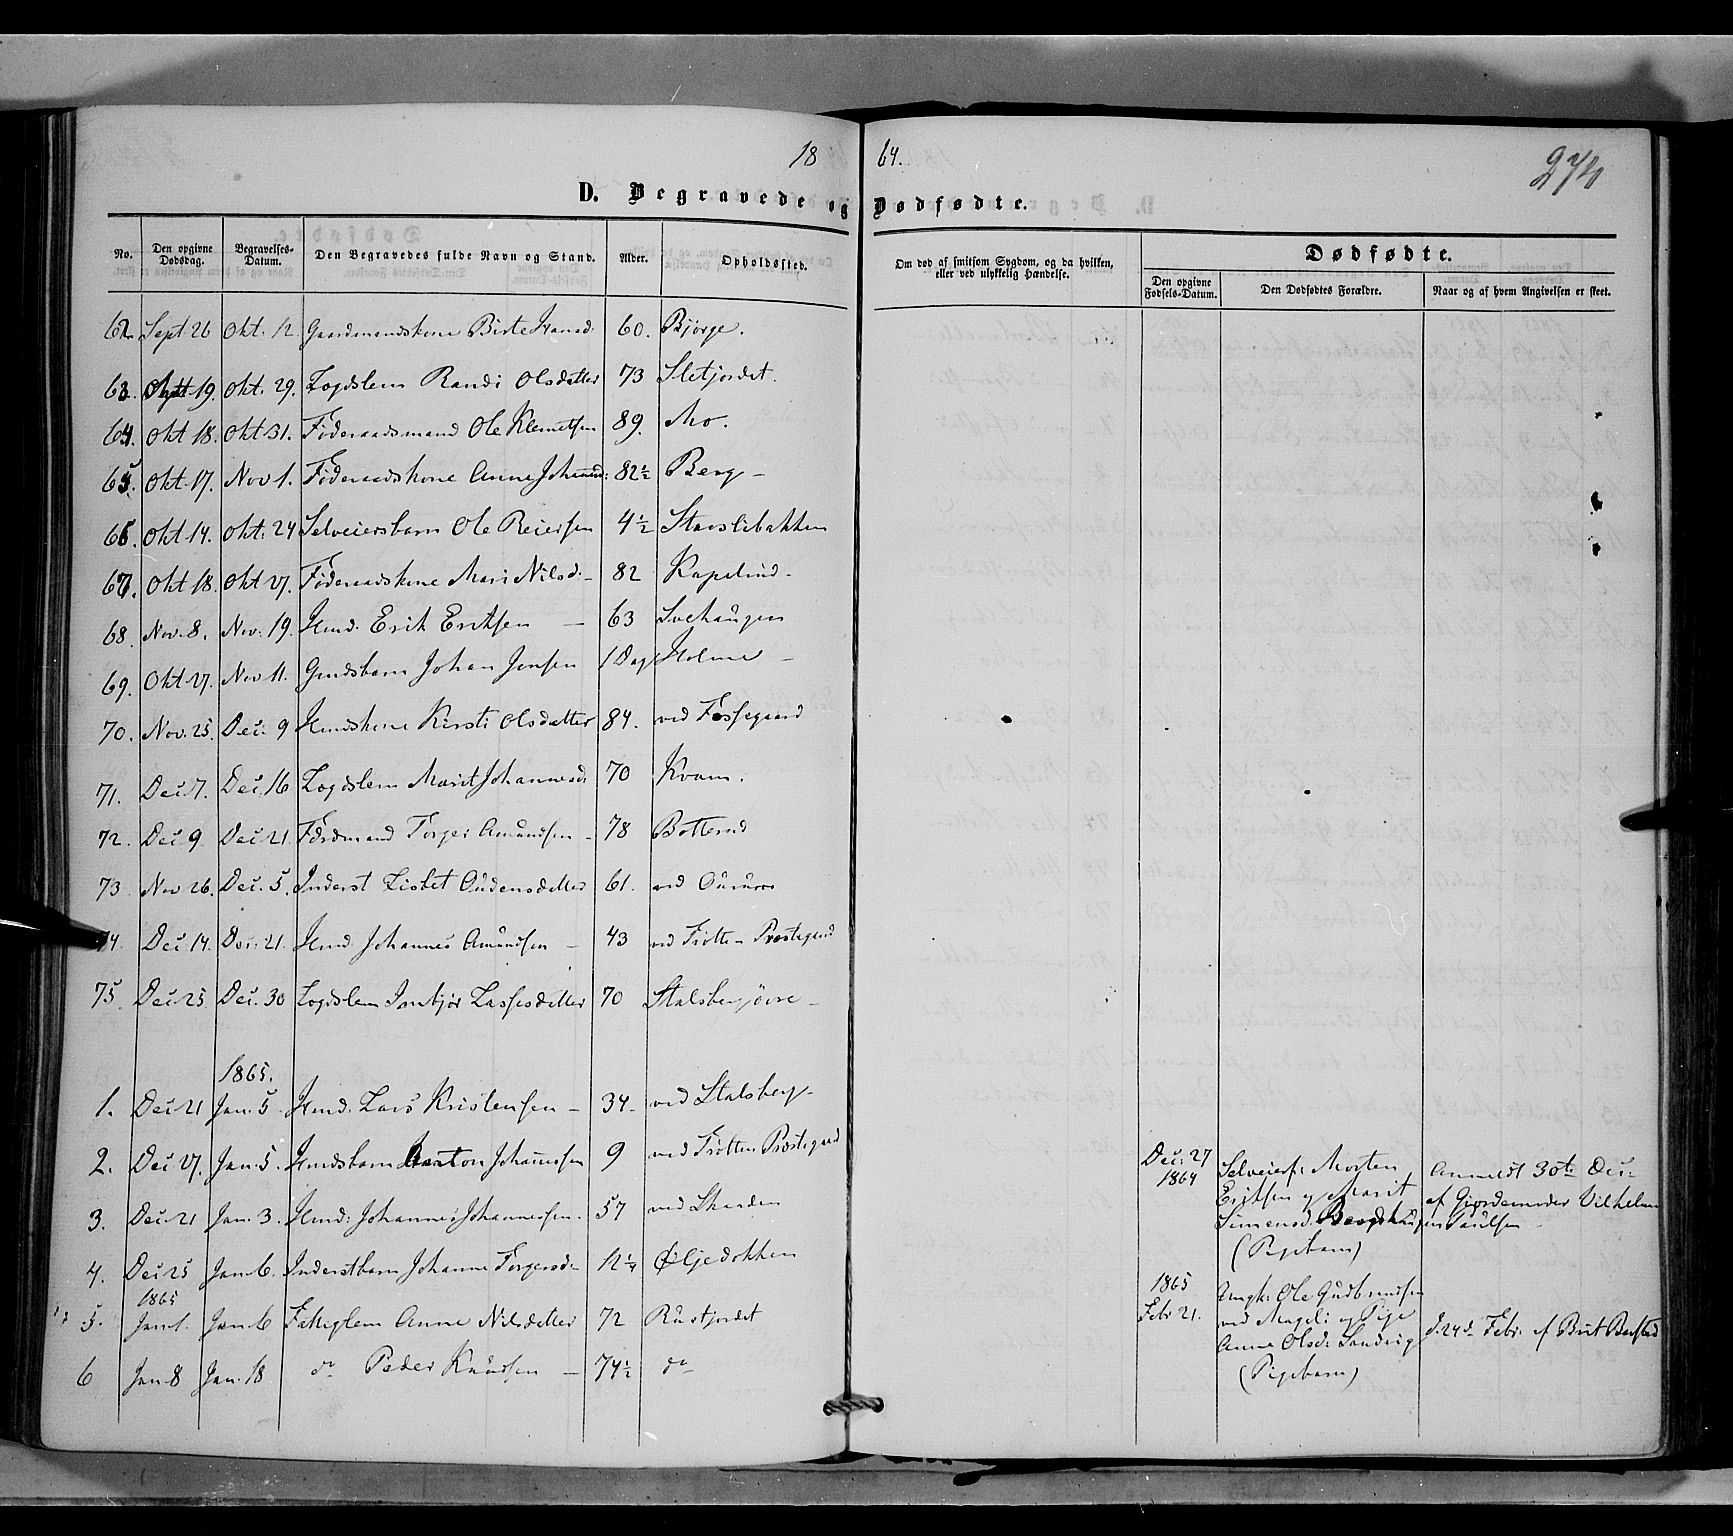 18 64.
274
D. Begravede og Dødfødte.
No. Den opgivne Dødsdag. Begravelses-Datum. Den Begravedes fulde Navn og Stand. Alder. Opholdssted. Om død af smitsom Sygdom, og da hvilken, eller ved ulykkelig Hændelse. Dødfødte.
Den opgivne Fødsels-Datum. Den Dødfødtes Forældre. Naar og af hvem Angivelsen er skeet.
62. Sept 26 Okt. 12 Gaardmandskone Birte Hansd: 60. Bjørge.
63. 19. Okt. 29. Logdslem Randi Olsdatter 73 Sletjordet.
64. Okt 18. Okt 31. Føderaadsmand Ole Klemetsen 89. Mo.
65. Okt 17. Nov 1. Føderaadskone Anne Johannesd: 82½ Berg –
66. Okt 14. Okt: 24 Selveiersbarn Ole Reiersen 4½ Stavslibakken
67. Okt 18. Okt 27. Føderaadskone Mari Nilsd: – 82 Kapelrud –
68. Nov. 8. Nov. 19. Hmd. Erik Eriksen – 63 Svehaugen
69. Okt 27. Nov 11. Gmdsbarn Johan Jensen 1 Dag Holme –
70. Nov. 25. Dec. 9 Hmdskone Kirsti Olsdatter 84. ved Fossegaard
71. Dec. 7. Dec. 16 Logdslem Marit Johannesd: 70 Kvam.
72. Dec 9 Dec 21 Fdrdmand Torger Amundsen – 78 Botterud
73 Nov 26. Dec. 5. Inderst Lisbet Audensdatter 61. ved
74. Dec 14. Dec. 21. Hmd Johannes Amundsen – 43 ved Frøtten Præstegaard
75. Dec 25. Dec. 30 Logdslem Imbjør Lassesdatter 70 Stalsberg øvre –
1865.
1. Dec 21 Jan. 5 Hmd. Lars Kristensen – 34 – ved Stalsberg –
2. Dec 27. Jan. 5. Hmdsbarn Anton Johannesen 9 ved Frøtten Præstegaard
3. Dec 21 Jan. 3. Hmd: Johannes Johannessen. 57 ved Skarden
4. Dec 25 Jan 6. Inderstbarn Johanne Torgersd: 12¼ Øljedokken
1865
5. Jan 1. Jan 6 Fattiglem Anne Nilsdatter 72 Rustjordet
6 Jan 8 Jan. 18 do Peder Knudsen – 74½ do
Dec: 27 1864 Selveierf: Morten
Eriksen og Marit
Simensd. Bergshaugen
(Pigebarn)
Anmeldt 30te Dec:
af Gjordemoder Vilhelm
Paulsen –
1865
Febr 21. Ungk: Ole Gudbrandsen
ved Mageli og Pige
Anne Olsd: Sandvig
(Pigebarn)
d. 24de Febr. af Brit